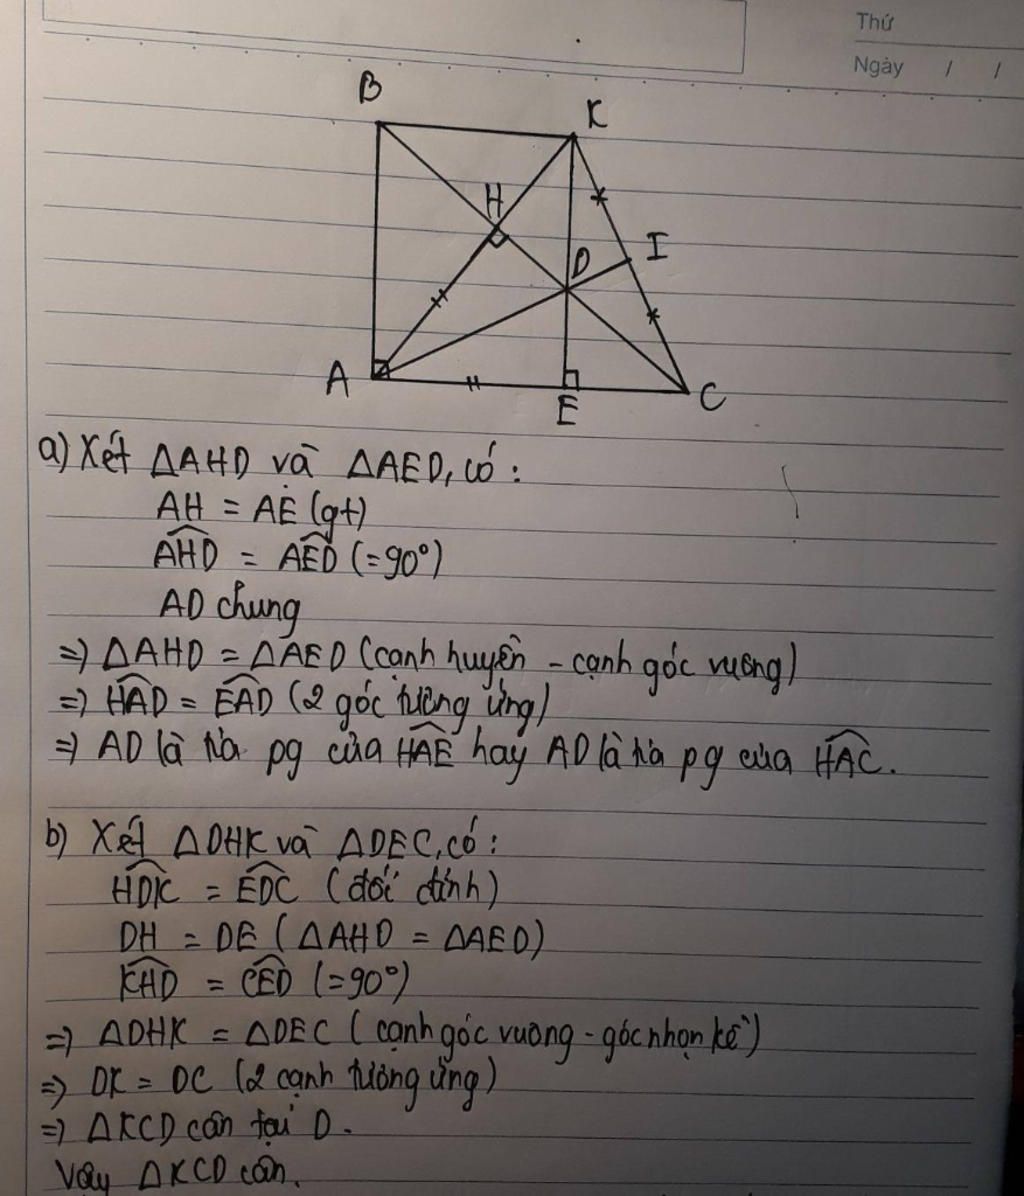 Thứ
Ngày / /
B
K
H
I
D
A
E
C
a) Xét ΔAHD và ΔAED, có:
AH = AE (gt)
$\widehat{AHD}$ = $\widehat{AED}$ (=90°)
AD chung
=) ΔAHD = ΔAED (cạnh huyền - cạnh góc vuông)
=) $\widehat{HAD}$ = $\widehat{EAD}$ (2 góc tương ứng)
=) AD là tia pg của $\widehat{HAE}$ hay AD là tia pg của $\widehat{HAC}$.
b) Xét ΔDHK và ΔDEC, có:
$\widehat{HDK}$ = $\widehat{EDC}$ (đối đỉnh)
DH = DE (ΔAHD = ΔAED)
$\widehat{KHD}$ = $\widehat{CED}$ (=90°)
=) ΔDHK = ΔDEC (cạnh góc vuông - góc nhọn kề)
=) DK = DC (2 cạnh tương ứng)
=) ΔKCD cân tại D.
Vậy ΔKCD cân.